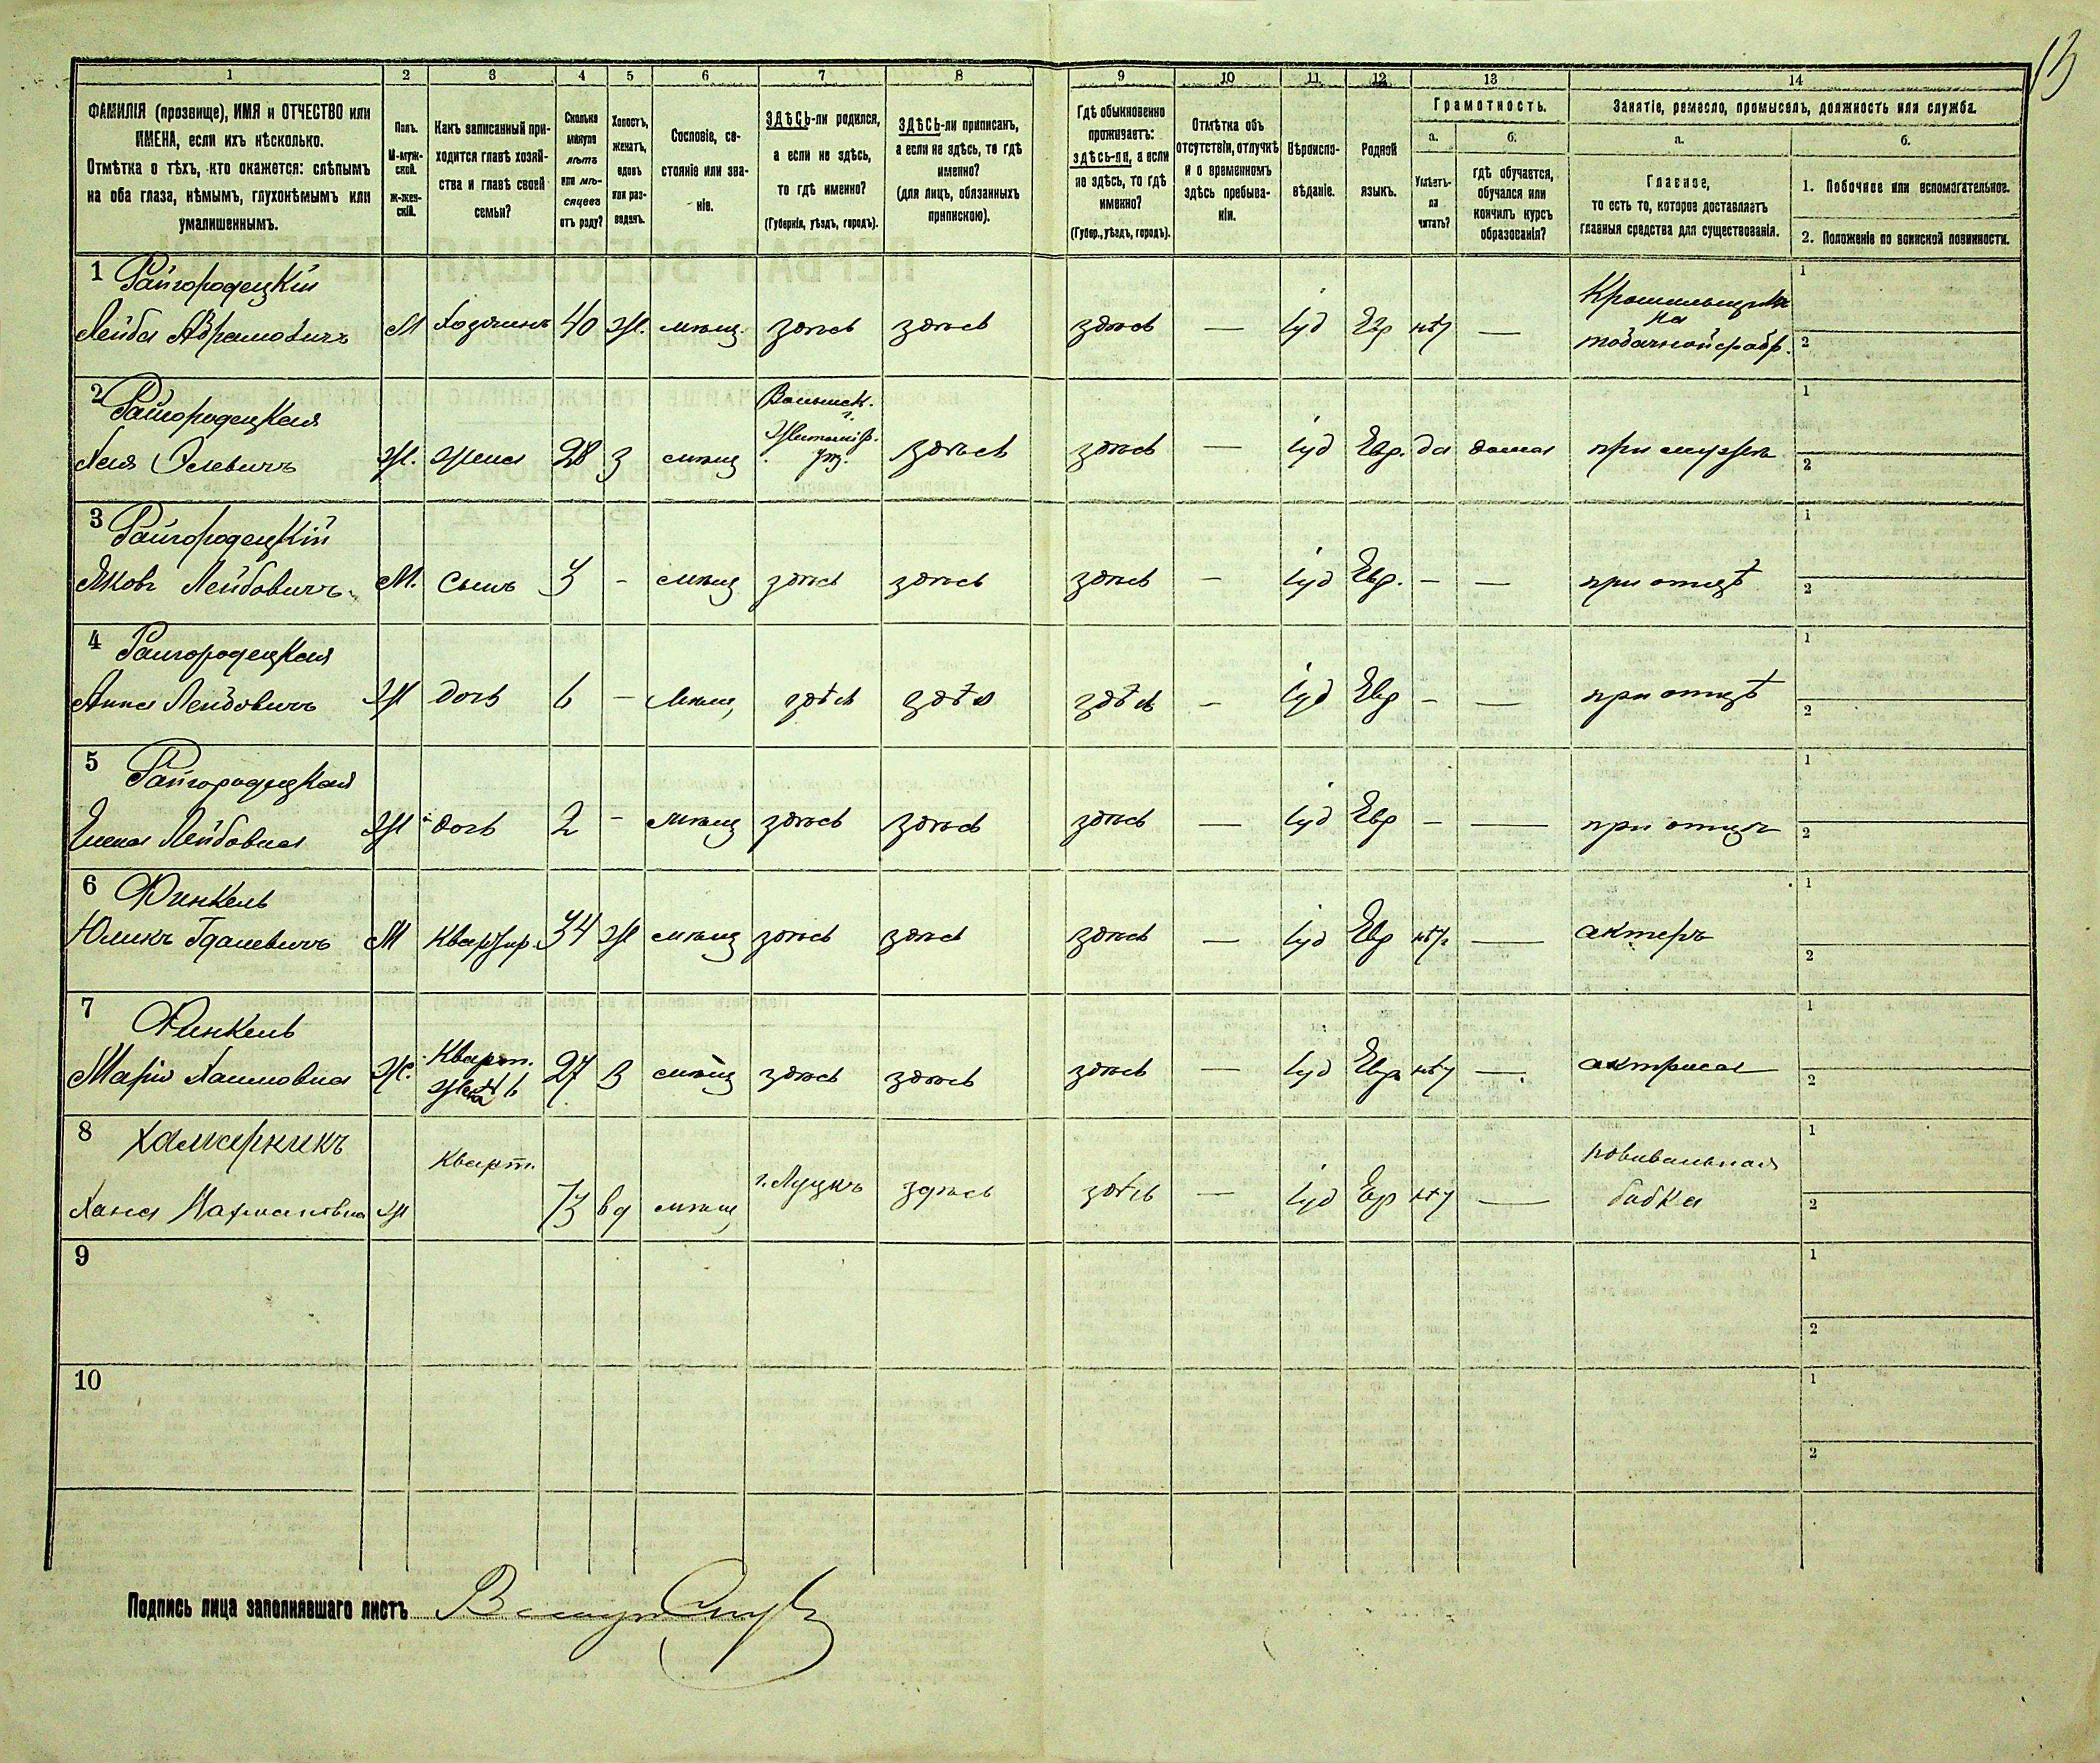 13
1 2 3 4 5 6 7 8 9 10 11 12 13 14
ФАМИЛІЯ (прозвище), ИМЯ и ОТЧЕСТВО или
ИМЕНА, если ихъ нѣсколько.
Отмѣтка о тѣхъ, кто окажется: слѣпымъ
на оба глаза, нѣмымъ, глухонѣмымъ или
умалишеннымъ.
Полъ.
М-муж-
ской.
Ж-жен-
скій.
Какъ записанный при-
ходится главѣ хозяй-
ства и главѣ своей
семьи?
Сколько
минуло
лѣтъ
или мѣ-
сяцевъ
отъ роду?
Холостъ,
женатъ,
вдовъ
или раз-
веденъ.
Сословіе, со-
стояніе или зва-
ніе.
ЗДѢСЬ-ли родился,
а если не здѣсь,
то гдѣ именно?
(Губернія, уѣздъ, городъ).
ЗДѢСЬ-ли приписан,
а если не здѣсь, то гдѣ
именно?
(для лицъ, обязанныхъ
припискою).
Гдѣ обыкновенно
проживаетъ:
здѣсь-ли, а если
не здѣсь, то гдѣ
именно?
(Губер., уѣздъ, городъ).
Отмѣтка объ
отсутствіи, отлучкѣ
и о временномъ
здѣсь пребыва-
ніи.
Вѣроиспо-
вѣданіе.
Родной
языкъ.
Грамотность.
а.
Умѣетъ-
ли
читать?
б.
гдѣ обучается,
обучался или
кончилъ курсъ
образованія?
Занятіе, ремесло, промыселъ, должность или служба.
а.
Главное,
то есть то, которое доставляетъ
главныя средства для существованія.
б.
1. Побочное или вспомогательное.
2. Положеніе по воинской повинности.
1 Райгородецкій Крошильщикъ 1
на
Лейба Абрамовичъ М Хозяинъ 40 Ж. мѣщ. здѣсь здѣсь здѣсь — іуд Евр нѣт — табачной фабр. 2
2 Райгородецкая Волынск. 1
г.
Житомір.
Хая Осиевичъ Ж. жена 28 З мѣщ уѣз. здѣсь здѣсь — іуд Евр. да дома при мужѣ 2
3 Райгородецкій 1
Яковъ Лейбовичъ. М. сынъ 3 - мѣщ здѣсь здѣсь здѣсь — іуд Евр. — — при отцѣ 2
4 Райгородецкая 1
Анна Лейбовичъ Ж дочь 6 — мѣщ, здѣсь здѣсь здѣсь — іуд Евр — — при отцѣ 2
5 Райгородецкая 1
Елена Лейбовна Ж дочь 2 - мѣщ здѣсь здѣсь здѣсь — іуд Евр — — при отцѣ 2
6 Финкель 1
Юликъ Гдалевичъ М Квартир. 34 Ж мѣщ здѣсь здѣсь здѣсь — іуд Евр нѣт — актеръ 2
7 Финкель Кварт. 1
Марія Хаимовна Ж. жена 27 З мѣщ здѣсь здѣсь здѣсь — іуд Евр нѣт — актриса 2
8 Хамарникъ Кварт. повивальная 1
Хана Нахмановна Ж 73 вд мѣщ, г. Луцкъ здѣсь здѣсь — іуд Евр нѣт — бабка 2
9 1
2
10 1
2
Подпись лица заполнявшаго листъ